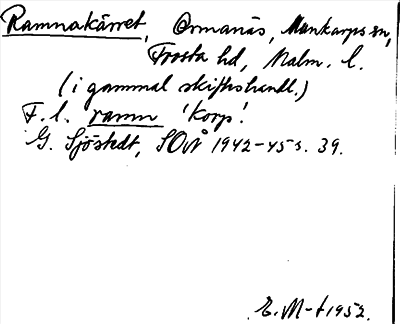 Ramnakärret, Ormanäs, Munkarps sn,
Frosta hd, Malm. l.
(i gammal skifteshandl.)
F. l. ramn 'korp'.
G. Sjöstedt, SOÅ 1942-45 s. 39.
E. M-t 1952.